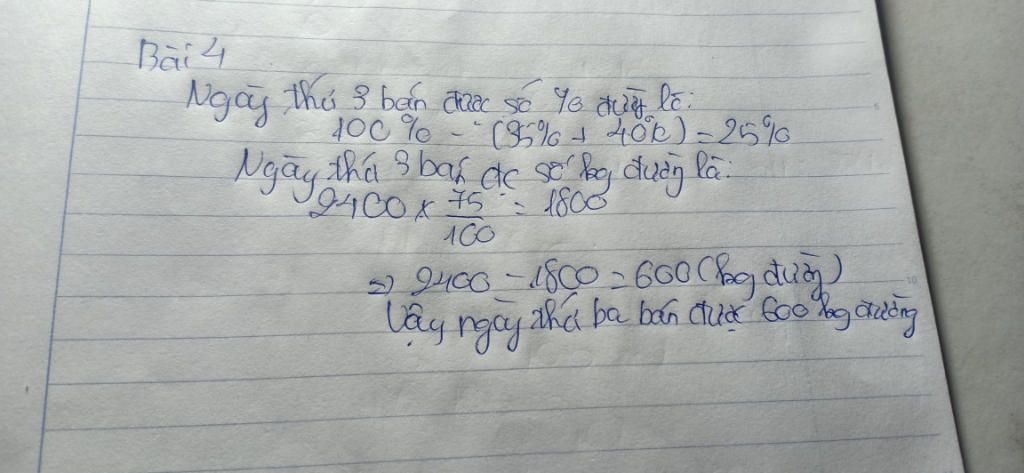 Bài 4
Ngày thứ 3 bán được số % đường là:
100% - (35% + 40%) = 25%
Ngày thứ 3 bán đc số kg đường là:
2400 x 75/100 = 1800
=> 2400 - 1800 = 600 (kg đường)
Vậy ngày thứ ba bán được 600 kg đường